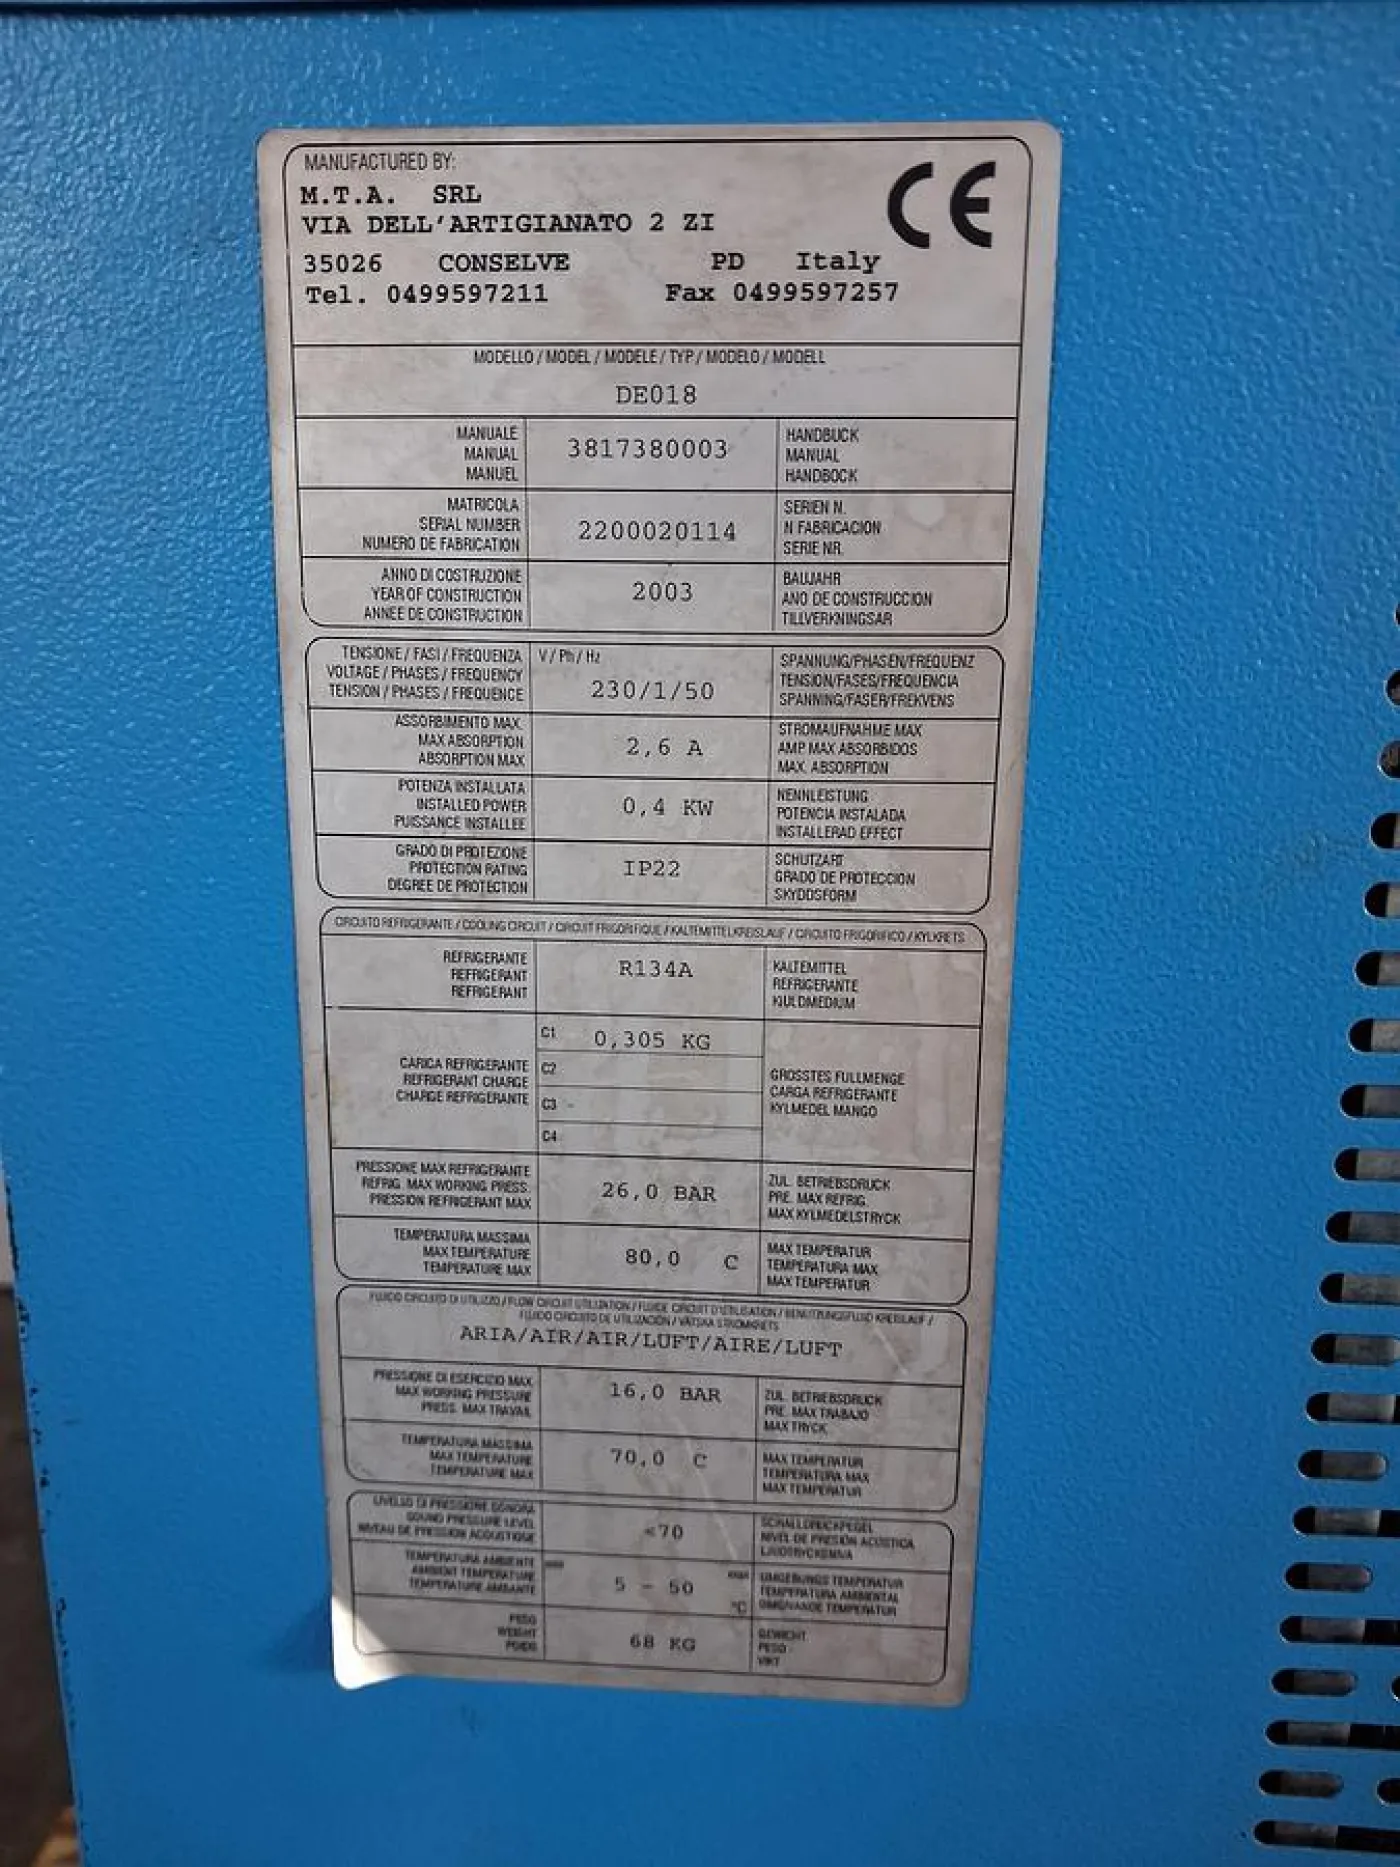 MANUFACTURED BY:
M.T.A. SRL
VIA DELL'ARTIGIANATO 2 ZI
35026 CONSELVE PD Italy
Tel. 0499597211 Fax 0499597257
CE
MODELLO / MODEL / MODELE / TYP / MODELO / MODELL
DE018
MANUALE
MANUAL
MANUEL
3817380003
HANDBUCK
MANUAL
HANDBOCK
MATRICOLA
SERIAL NUMBER
NUMERO DE FABRICATION
2200020114
SERIEN N.
N FABRICACION
SERIE NR.
ANNO DI COSTRUZIONE
YEAR OF CONSTRUCTION
ANNEE DE CONSTRUCTION
2003
BAUJAHR
ANO DE CONSTRUCCION
TILLVERKNINGSAR
TENSIONE / FASI / FREQUENZA
VOLTAGE / PHASES / FREQUENCY
TENSION / PHASES / FREQUENCE
V / Ph / Hz
230/1/50
SPANNUNG/PHASEN/FREQUENZ
TENSION/FASES/FREQUENCIA
SPANNING/FASER/FREKVENS
ASSORBIMENTO MAX.
MAX ABSORPTION
ABSORPTION MAX
2,6 A
STROMAUFNAHME MAX
AMP MAX ABSORBIDOS
MAX. ABSORPTION
POTENZA INSTALLATA
INSTALLED POWER
PUISSANCE INSTALLEE
0,4 KW
NENNLEISTUNG
POTENCIA INSTALADA
INSTALLERAD EFFECT
GRADO DI PROTEZIONE
PROTECTION RATING
DEGREE DE PROTECTION
IP22
SCHUTZART
GRADO DE PROTECCION
SKYDDSFORM
CIRCUITO REFRIGERANTE / COOLING CIRCUIT / CIRCUIT FRIGORIFIQUE / KALTEMITTELKREISLAUF / CIRCUITO FRIGORIFICO / KYLKRETS
REFRIGERANTE
REFRIGERANT
REFRIGERANT
R134A
KALTEMITTEL
REFRIGERANTE
KULDMEDIUM
CARICA REFRIGERANTE
REFRIGERANT CHARGE
CHARGE REFRIGERANTE
C1 0,305 KG
C2
C3 -
C4
GROSSTES FULLMENGE
CARGA REFRIGERANTE
KYLMEDEL MANGO
PRESSIONE MAX REFRIGERANTE
REFRIG. MAX WORKING PRESS.
PRESSION REFRIGERANT MAX
26,0 BAR
ZUL. BETRIEBSDRUCK
PRE. MAX REFRIG.
MAX KYLMEDELSTRYCK
TEMPERATURA MASSIMA
MAX TEMPERATURE
TEMPERATURE MAX
80,0 C
MAX TEMPERATUR
TEMPERATURA MAX.
MAX TEMPERATUR
FLUIDO CIRCUITO DI UTILIZZO / FLOW CIRCUIT UTILIZATION / FLUIDE CIRCUIT D'UTILISATION / BENUTZUNGSFLUID KREISLAUF /
FLUIDO CIRCUITO DE UTILIZACIÓN / VÄTSKA STROMKRETS
ARIA/AIR/AIR/LUFT/AIRE/LUFT
PRESSIONE DI ESERCIZIO MAX.
MAX WORKING PRESSURE
PRESS. MAX TRAVAIL
16,0 BAR
ZUL. BETRIEBSDRUCK
PRE. MAX TRABAJO
MAX TRYCK
TEMPERATURA MASSIMA
MAX TEMPERATURE
TEMPERATURE MAX
70,0 C
MAX TEMPERATUR
TEMPERATURA MAX
MAX TEMPERATUR
LIVELLO DI PRESSIONE SONORA
SOUND PRESSURE LEVEL
NIVEAU DE PRESSION ACOUSTIQUE
<70
SCHALLDRUCKPEGEL
NIVEL DE PRESION ACÚSTICA
TEMPERATURA AMBIENTE
AMBIENT TEMPERATURE
TEMPERATURE AMBIANTE
5 - 50
°C
UMGEBUNGS TEMPERATUR
TEMPERATURA AMBIENTAL
OMGIVANDE TEMPERATUR
PESO
WEIGHT
POIDS
68 KG
GEWICHT
PESO
VIKT